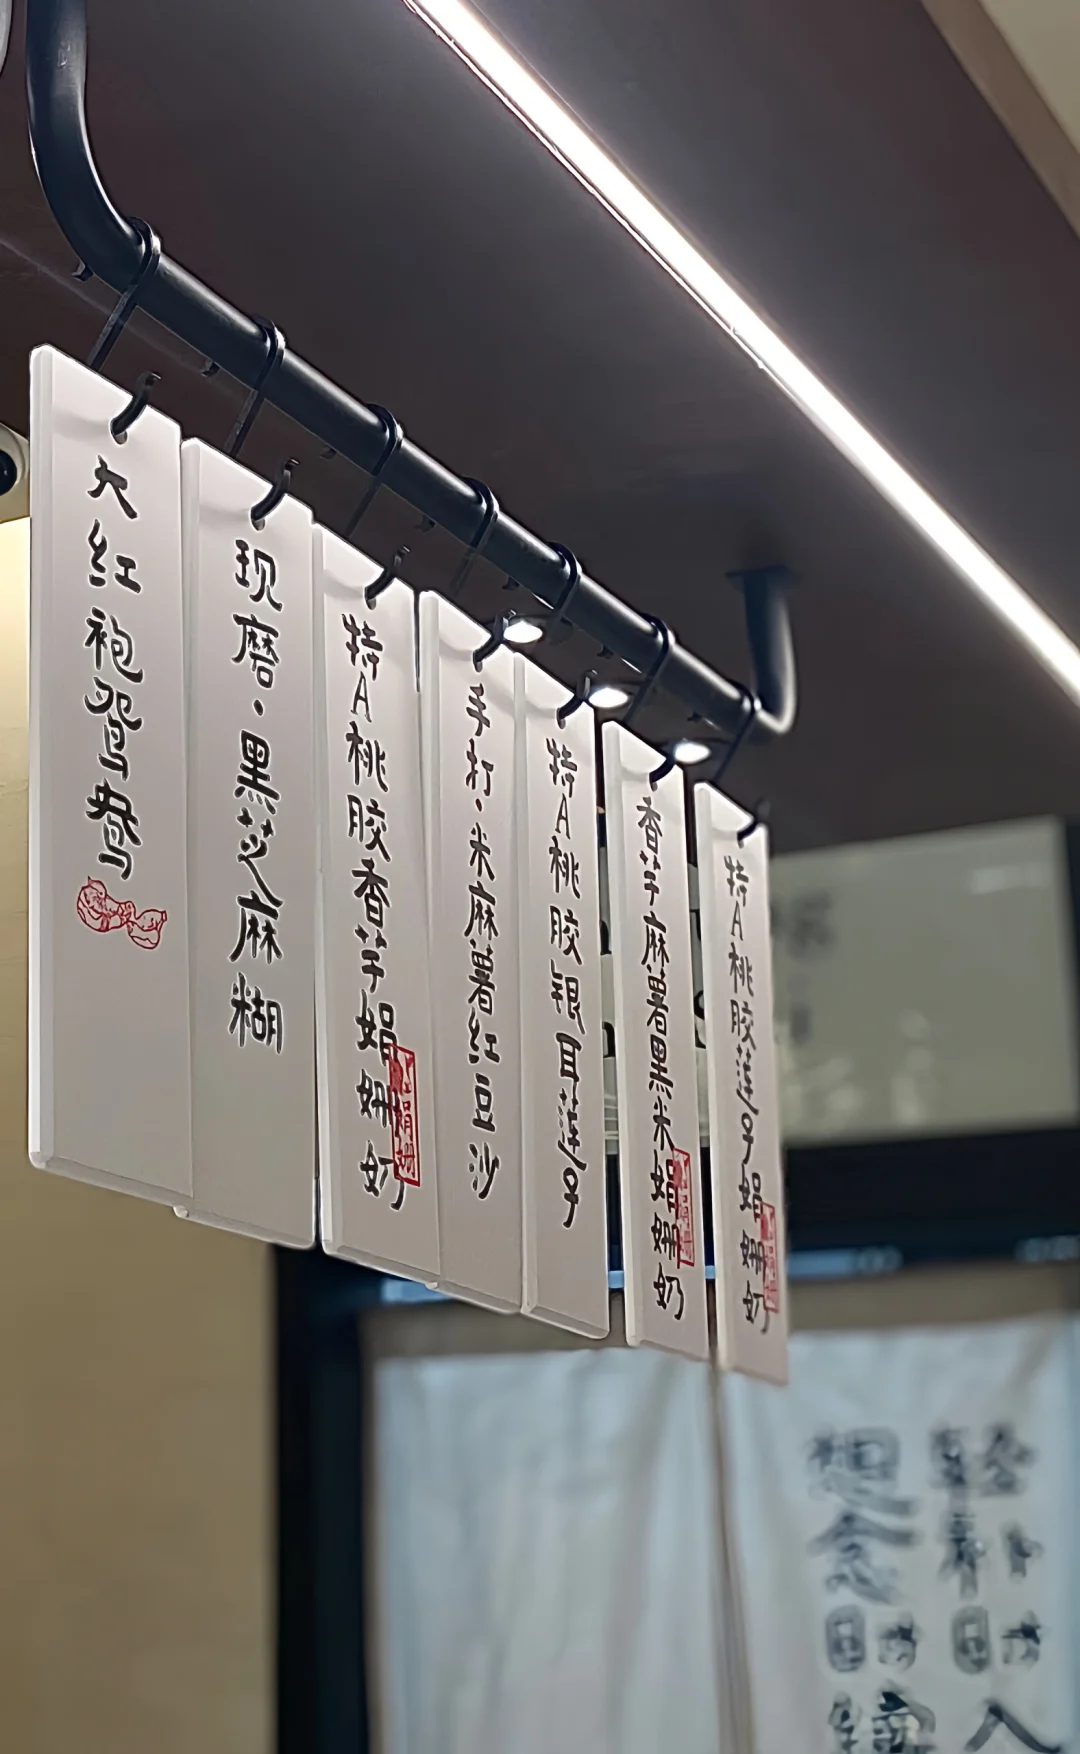 大红袍鸳鸯
现磨·黑芝麻糊
特A桃胶香芋娟姗奶
手打·米麻薯红豆沙
特A桃胶银耳莲子
香芋麻薯黑米娟姗奶
特A桃胶莲子娟姗奶